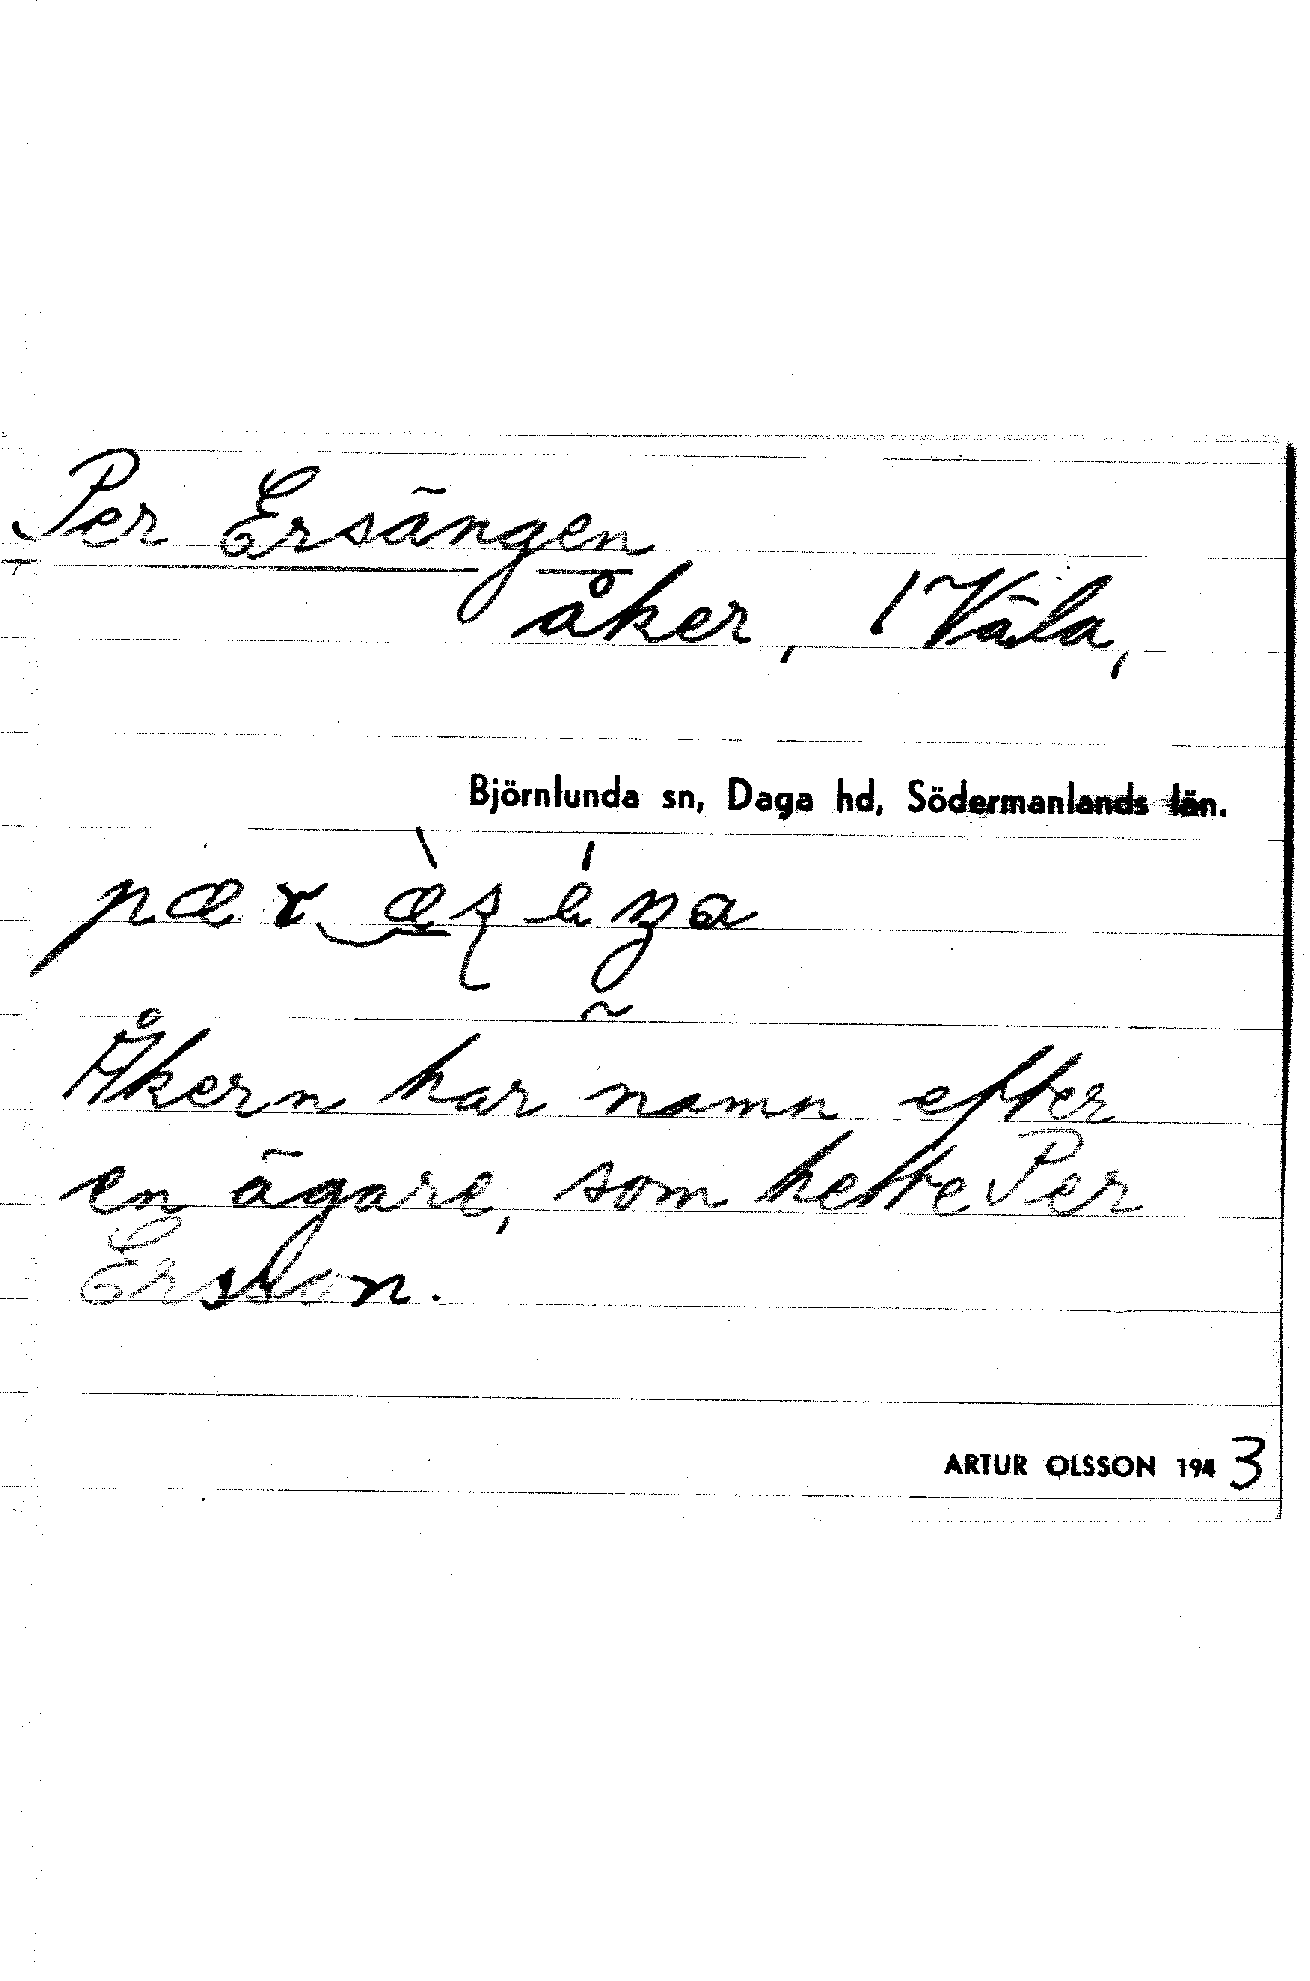 Per Ersängen
åker, 1 Väla,
Björnlunda sn, Daga hd, Södermanlands län.
Åkern har namn efter
en ägare, som hette Per
Ersson.
ARTUR OLSSON 1943